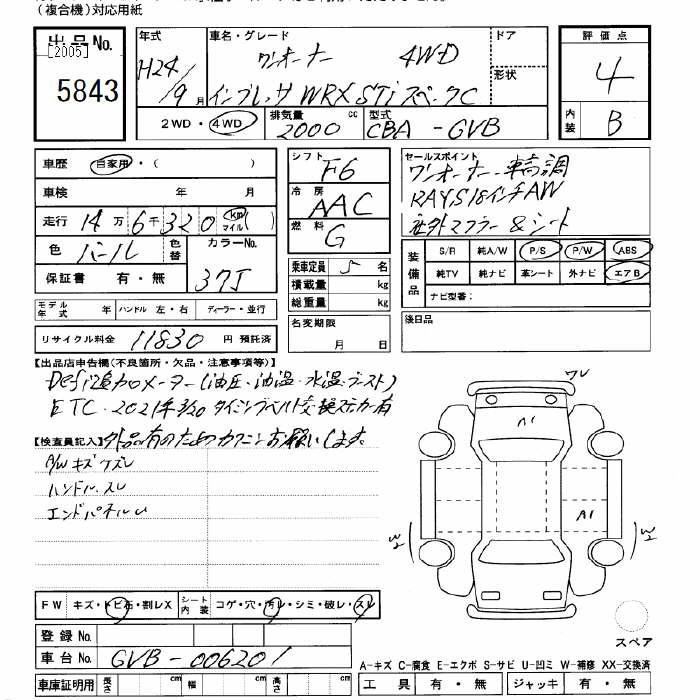 (複合機)対応用紙
出品No. [2005] 5843
年式 H24/9月
車名・グレード ワンオーナー 4WD
インプレッサ WRX STi スペックC
ドア
形状
2WD・4WD 排気量 2000 cc 型式 CBA-GVB
評価点 4
内装 B
車歴 自家用・( )
車検 年 月
走行 14万6千320 km マイル( )
色 パール 色替 カラーNo. 37J
保証書 有・無
モデル年式 年 ハンドル 左・右 ディーラー・並行
リサイクル料金 11830 円 預託済
シフト F6
冷房 AAC
燃料 G
乗車定員 5 名
積載量 kg
総重量 kg
名変期限 月 日
セールスポイント
ワンオーナー 車高調
RAYS18インチAW
社外マフラー&シート
装備品 S/R 純A/W P/S P/W ABS
純TV 純ナビ 革シート 外ナビ エアB
ナビ型番:
後日品
【出品店申告欄(不良箇所・欠品・注意事項等)】
Defi追加メーター(油圧・油温・水温・ブースト)
ETC・2021年3/20 タイミングベルト交換ステッカー有
【検査員記入】外品有のためカクニンお願いします。
A/Wキズスレ
ハンドルスレ
エンドパネルU
ワレ
A1
A1
W2
W2
FW キズ・トビ石・割レX シート内装 コゲ・穴・汚レ・シミ・破レ・スレ
登録No.
車台No. GVB-006201
車庫証明用 長さ cm 幅 cm 高さ cm
スペア
A-キズ C-腐食 E-エクボ S-サビ U-凹ミ W-補修 XX-交換済
工具 有・無 ジャッキ 有・無